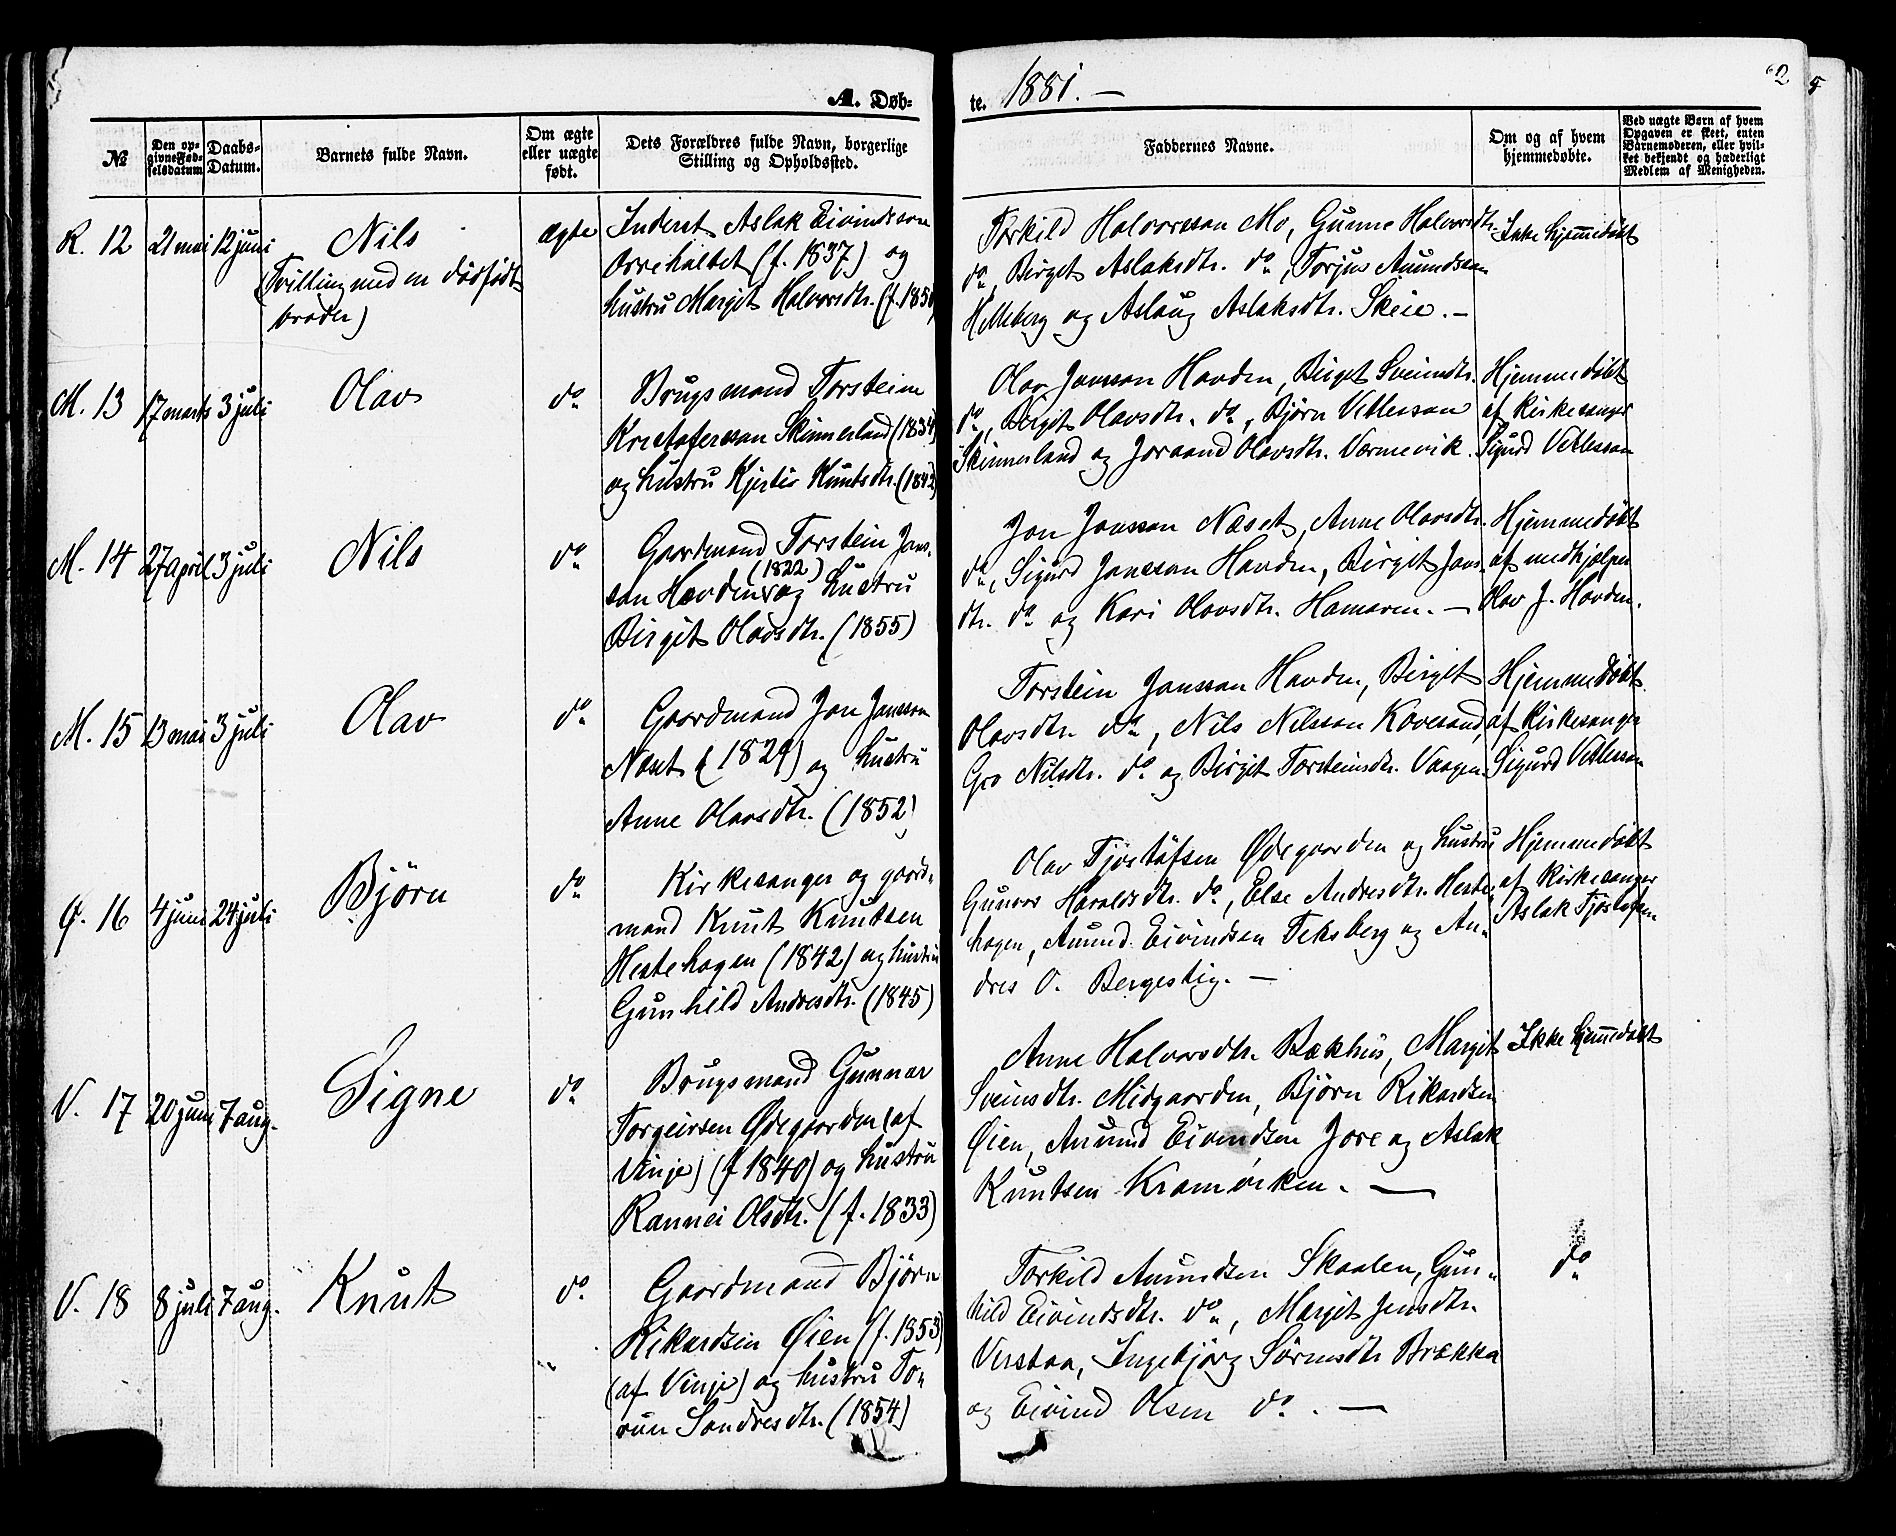 A. Døb-
te. 1881. —
62
5
№
Den op-
givne Fød-
selsdatum
Daabs-
Datum.
Barnets fulde Navn.
Om ægte
eller uægte
født.
Dets Forældres fulde Navn, borgerlige
Stilling og Opholdssted.
Faddernes Navne.
Om og af hvem
hjemmedøbte.
Ved uægte Børn af hvem
Opgaven er skeet, enten
Barnemoderen, eller hvil-
ket bekjendt og hæderligt
Medlem af Menigheden.
R. 12
21 mai
12 juni
Nils
(Tvilling med en dødfødt
broder)
ægte
Inderst Aslak Eivindsson
Orrehaltet (f. 1837) og
hustru Margit Halvorsdtr. (f. 1850)
Torkild Halvorsson Mo, Gunne Halvorsdtr.
do, Birget Aslaksdtr. do, Torjus Aunundsson
Helleberg og Aslaug Aslaksdtr. Skeie. —
Ikke hjemmedøbt
M. 13
17 marts
3 juli
Olav
do
Brugsmand Torstein
Kristofersson Skinnerland (1834)
og hustru Kjersti Knutsdtr. (1842)
Olav Jonsson Hovden, Birget Sveinsdtr.
do, Birgit Olavsdtr. do, Bjørn Vetlesson
Skinnerland og Joraand Olavsdtr. Varmevik.
Hjemmedøbt
af kirkesanger
Sigurd Vetlesson
M. 14
27 april
3 juli
Nils
do
Gaardmand Torstein Jons-
son Hovden (1822) og hustru
Birgit Olavsdtr. (1855)
Jon Jonsson Næset, Anne Olavsdtr.
do, Sigurd Jonsson Hovden, Birgit Jons-
dtr. do og Kari Olavsdtr. Hamaren. —
Hjemmedøbt
af medhjælper
Olav J. Hovden.
M. 15
13 mai
3 juli
Olav
do
Gaardmand Jon Jonsson
Næset (1829) og hustru
Anne Olavsdtr. (1852)
Torstein Jonsson Hovden, Birget
Olavsdtr. do, Nils Nilsson Kovesand,
Gro Nilsdtr. do og Birgit Torsteinsdtr. Vaagen.
Hjemmedøbt
af kirkesanger
Sigurd Vetlesson
Ø. 16
4 juni
24 juli
Bjørn
do
Kirkesanger og gaard-
mand Knut Knutsen
Hestehagen (1842) og hustru
Gunhild Andresdtr. (1845)
Olav Tjøstøfsen Ødegaarden og hustru
Gunvor Haraldsdtr. do, Else Andresdtr. Heste-
hagen, Aunund Eivindsen Teksberg og An-
dres O. Bergestig. —
Hjemmedøbt
af kirkesanger
Aslak Tjøstofsen
V. 17
20 juni
7 aug.
Signe
do
Brugsmand Gunnar
Torgeirsen Ødegaarden (af
Vinje) (f 1840) og hustru
Rannei Olsdtr. (f. 1833)
Anne Halvorsdtr. Bækhus, Margit
Sveinsdtr. Midgaarden, Bjørn Rikardsen
Øien, Aunund Eivindsen Jore og Aslak
Knutsen Kramviken. —
Ikke hjemmedøbt
V. 18
8 juli
7 aug.
Knut
do
Gaardmand Bjørn
Rikardsen Øien (f. 1853)
(af Vinje) og hustru To-
run Sondresdtr. (1854)
Torkild Aunundsen Skaalen, Gun-
hild Eivindsdtr. do, Margit Jonsdtr.
Verstaa, Ingebjørg Sørensdtr Brækka
og Eivind Olsen do. —
do